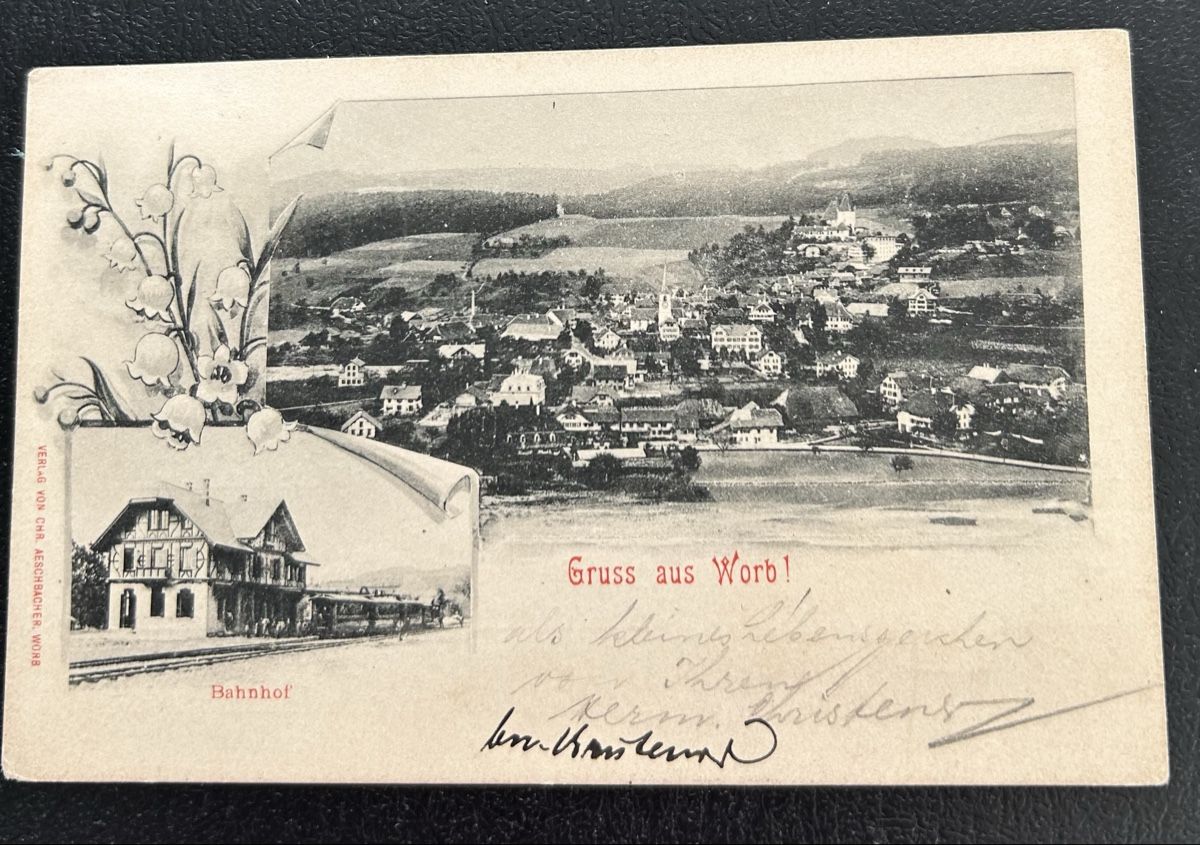 VERLAG VON CHR. AESCHBACHER, WORB
Gruss aus Worb!
Bahnhof
als kleines Lebenszeichen
von Ihrem
Herm. Christener